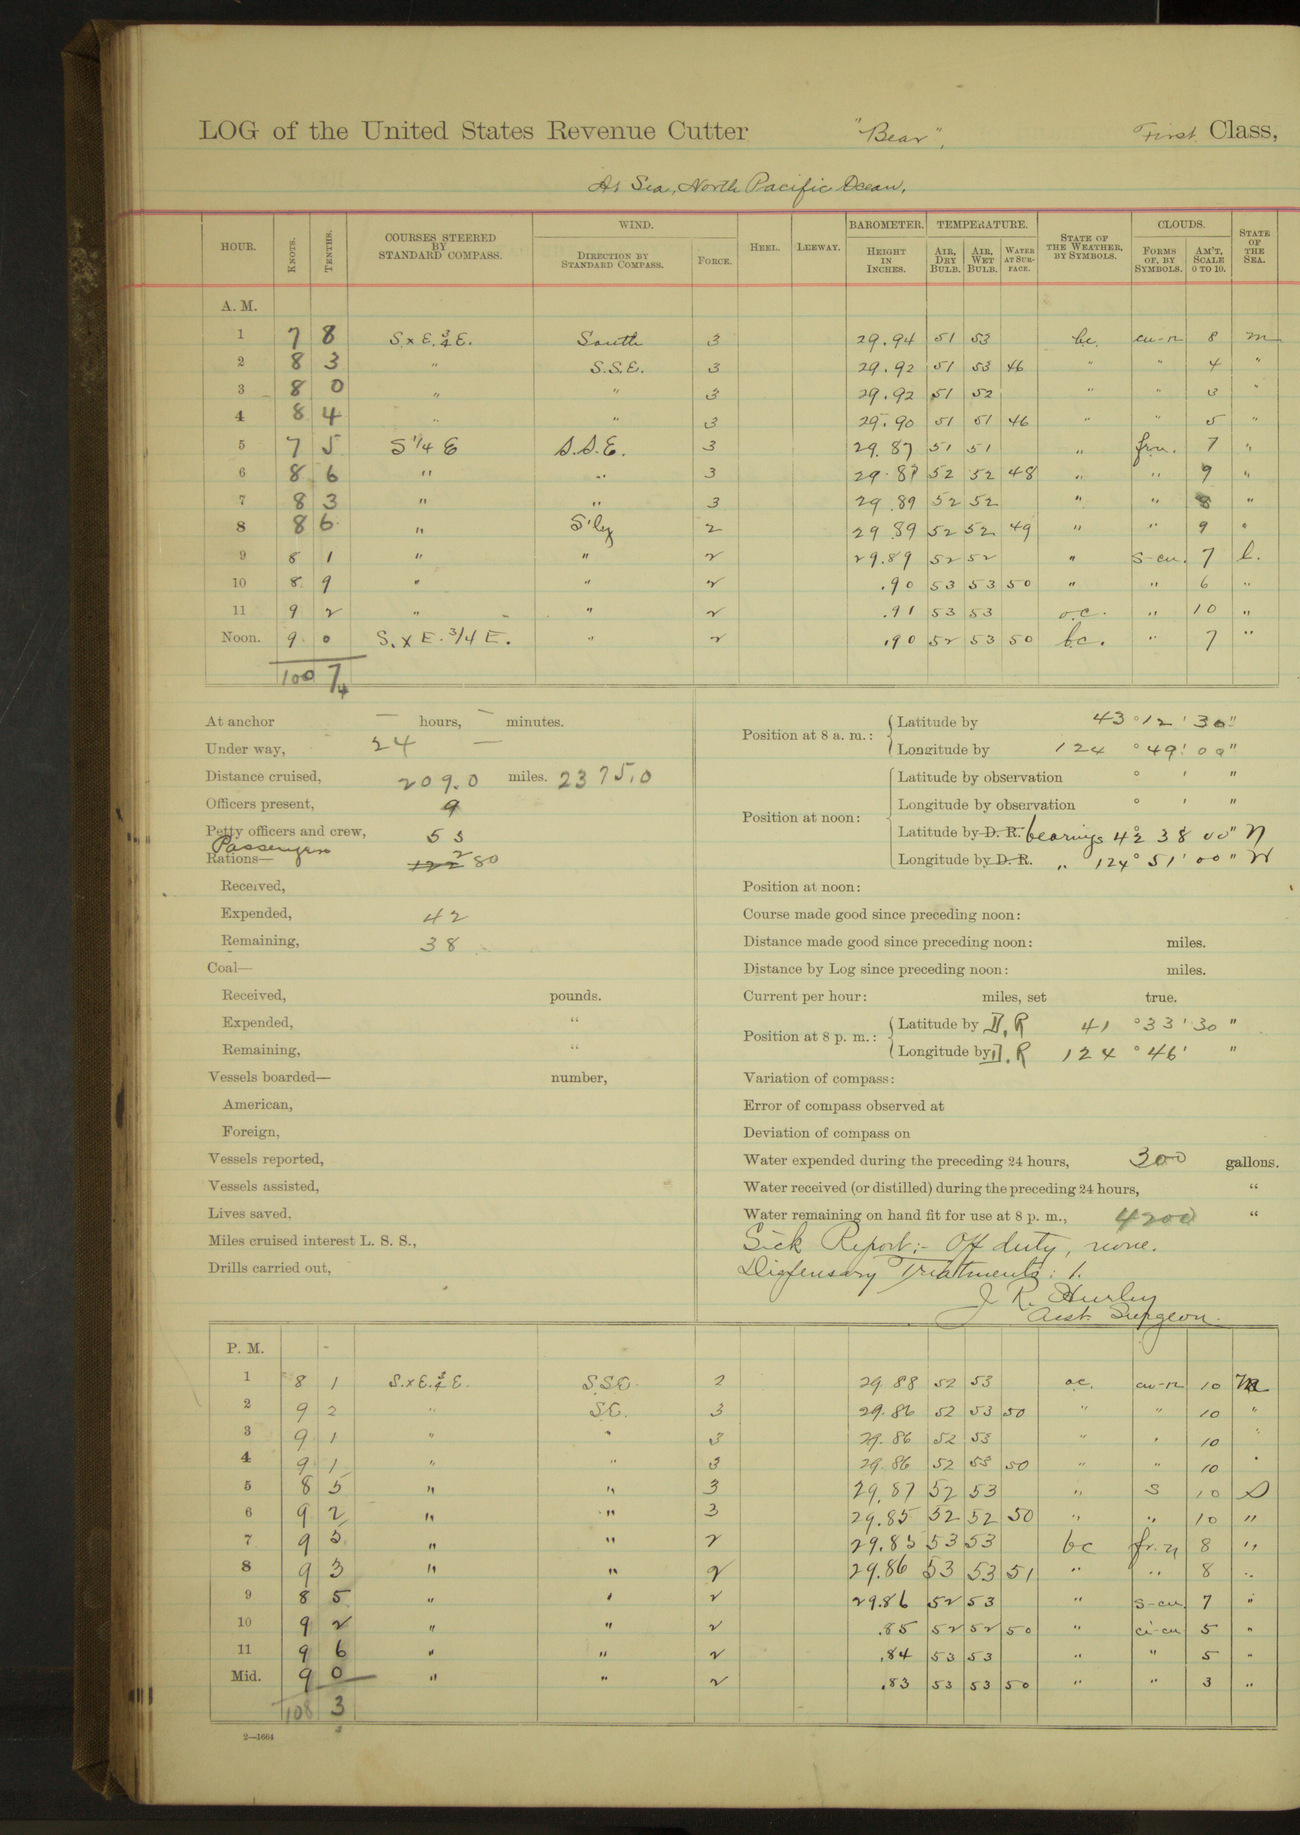 LOG of the United States Revenue Cutter "Bear", First Class,
At Sea, North Pacific Ocean,
HOUR. KNOTS. TENTHS. COURSES STEERED BY STANDARD COMPASS. WIND. DIRECTION BY STANDARD COMPASS. FORCE. HEEL. LEEWAY. BAROMETER. HEIGHT IN INCHES. TEMPERATURE. AIR, DRY BULB. AIR, WET BULB. WATER AT SURFACE. STATE OF THE WEATHER, BY SYMBOLS. CLOUDS. FORMS OF, BY SYMBOLS. AM'T, SCALE 0 TO 10. STATE OF THE SEA.
A. M.
1 7 8 S.xE.¾E. South 3 29.94 51 53 bc. cu-n 8 m
2 8 3 " S.S.E. 3 29.92 51 53 46 " " 4 "
3 8 0 " " 3 29.92 51 52 " " 3 "
4 8 4 " " 3 29.90 51 51 46 " " 5 "
5 7 5 S 1/4 E S.S.E. 3 29.87 51 51 " 7 "
6 8 6 " " 3 29.87 52 52 48 " " 9 "
7 8 3 " " 3 29.89 52 52 " " 8 "
8 8 6 " S'ly 2 29.89 52 52 49 " " 9 "
9 8 1 " " 2 29.89 52 52 " s-cu. 7 l.
10 8 9 " " 2 .90 53 53 50 " " 6 "
11 9 2 " " 2 .91 53 53 o.c. " 10 "
Noon. 9 0 S.xE.3/4E. " 2 .90 52 53 50 bc. " 7 "
100 7
4
At anchor — hours, — minutes.
Under way, 24 —
Distance cruised, 209.0 miles. 2375.0
Officers present, 9
Petty officers and crew, 53
Passengers
Rations— 122 2 80
Received,
Expended, 42
Remaining, 38
Coal—
Received, pounds.
Expended, "
Remaining, "
Vessels boarded— number,
American,
Foreign,
Vessels reported,
Vessels assisted,
Lives saved,
Miles cruised interest L. S. S.,
Drills carried out,
Position at 8 a. m.: Latitude by 43 ° 12 ' 30 "
Longitude by 124 ° 49 ' 00 "
Position at noon: Latitude by observation ° ' "
Longitude by observation ° ' "
Latitude by D. R. bearings 42° 38 00" N
Longitude by D. R. " 124° 51' 00" W
Position at noon:
Course made good since preceding noon:
Distance made good since preceding noon: miles.
Distance by Log since preceding noon: miles.
Current per hour: miles, set true.
Position at 8 p. m.: Latitude by D.R 41 ° 33 ' 30 "
Longitude by D.R 124 ° 46 ' "
Variation of compass:
Error of compass observed at
Deviation of compass on
Water expended during the preceding 24 hours, 300 gallons.
Water received (or distilled) during the preceding 24 hours, "
Water remaining on hand fit for use at 8 p. m., 4200 "
Sick Report:- Off duty, none.
Dispensary Treatments: 1.
J. R. Hurley
Asst. Surgeon.
P. M.
1 8 1 S.xE.¾E. S.S.E. 2 29.88 52 53 oc. cu-n 10 m
2 9 2 " S.E. 3 29.86 52 53 50 " " 10 "
3 9 1 " " 3 29.86 52 53 " " 10 "
4 9 1 " " 3 29.86 52 53 50 " " 10 "
5 8 5 " " 3 29.87 52 53 " S 10 S
6 9 2 " " 3 29.85 52 52 50 " " 10 "
7 9 5 " " 2 29.85 53 53 bc fr.n 8 "
8 9 3 " " 2 29.86 53 53 51 " " 8 "
9 8 5 " " 2 29.86 52 53 " s-cu. 7 "
10 9 2 " " 2 .85 52 52 50 " ci-cu 5 "
11 9 6 " " 2 .84 53 53 " " 5 "
Mid. 9 0 " " 2 .83 53 53 50 " " 3 "
108 3
2—1664